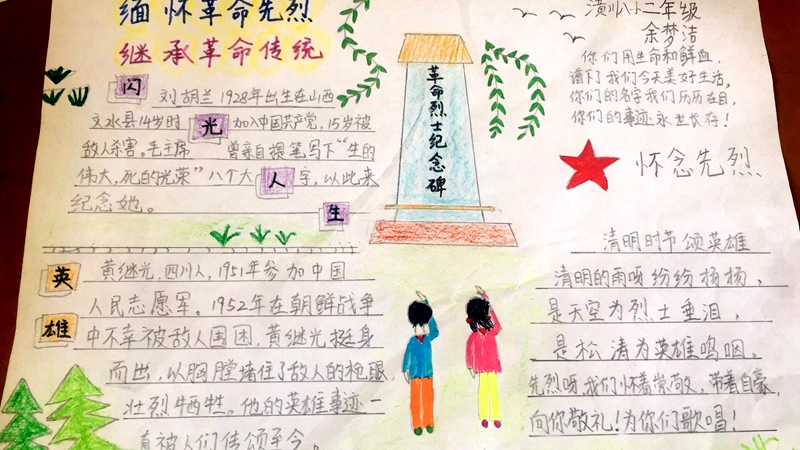 缅怀革命先烈
继承革命传统
闪 光 人 生
刘胡兰1928年出生在山西
文水县14岁时 加入中国共产党,15岁被
敌人杀害。毛主席 曾亲自提笔写下“生的
伟大,死的光荣”八个大 字,以此来
纪念她。
革命烈士纪念碑
潢川八小二年级
余梦洁
你们用生命和鲜血,
谱下了我们今天美好生活,
你们的名字我们历历在目,
你们的事迹永世长存!
怀念先烈
英雄
黄继光,四川人,1951年参加中国
人民志愿军。1952年在朝鲜战争
中不幸被敌人围困,黄继光挺身
而出,以胸膛堵住了敌人的枪眼,
壮烈牺牲。他的英雄事迹一
直被人们传颂至今。
清明时节颂英雄
清明的雨呀纷纷扬扬,
是天空为烈士垂泪,
是松清为英雄呜咽。
先烈呀,我们怀着崇敬,带着自豪,
向你敬礼!为你们歌唱!